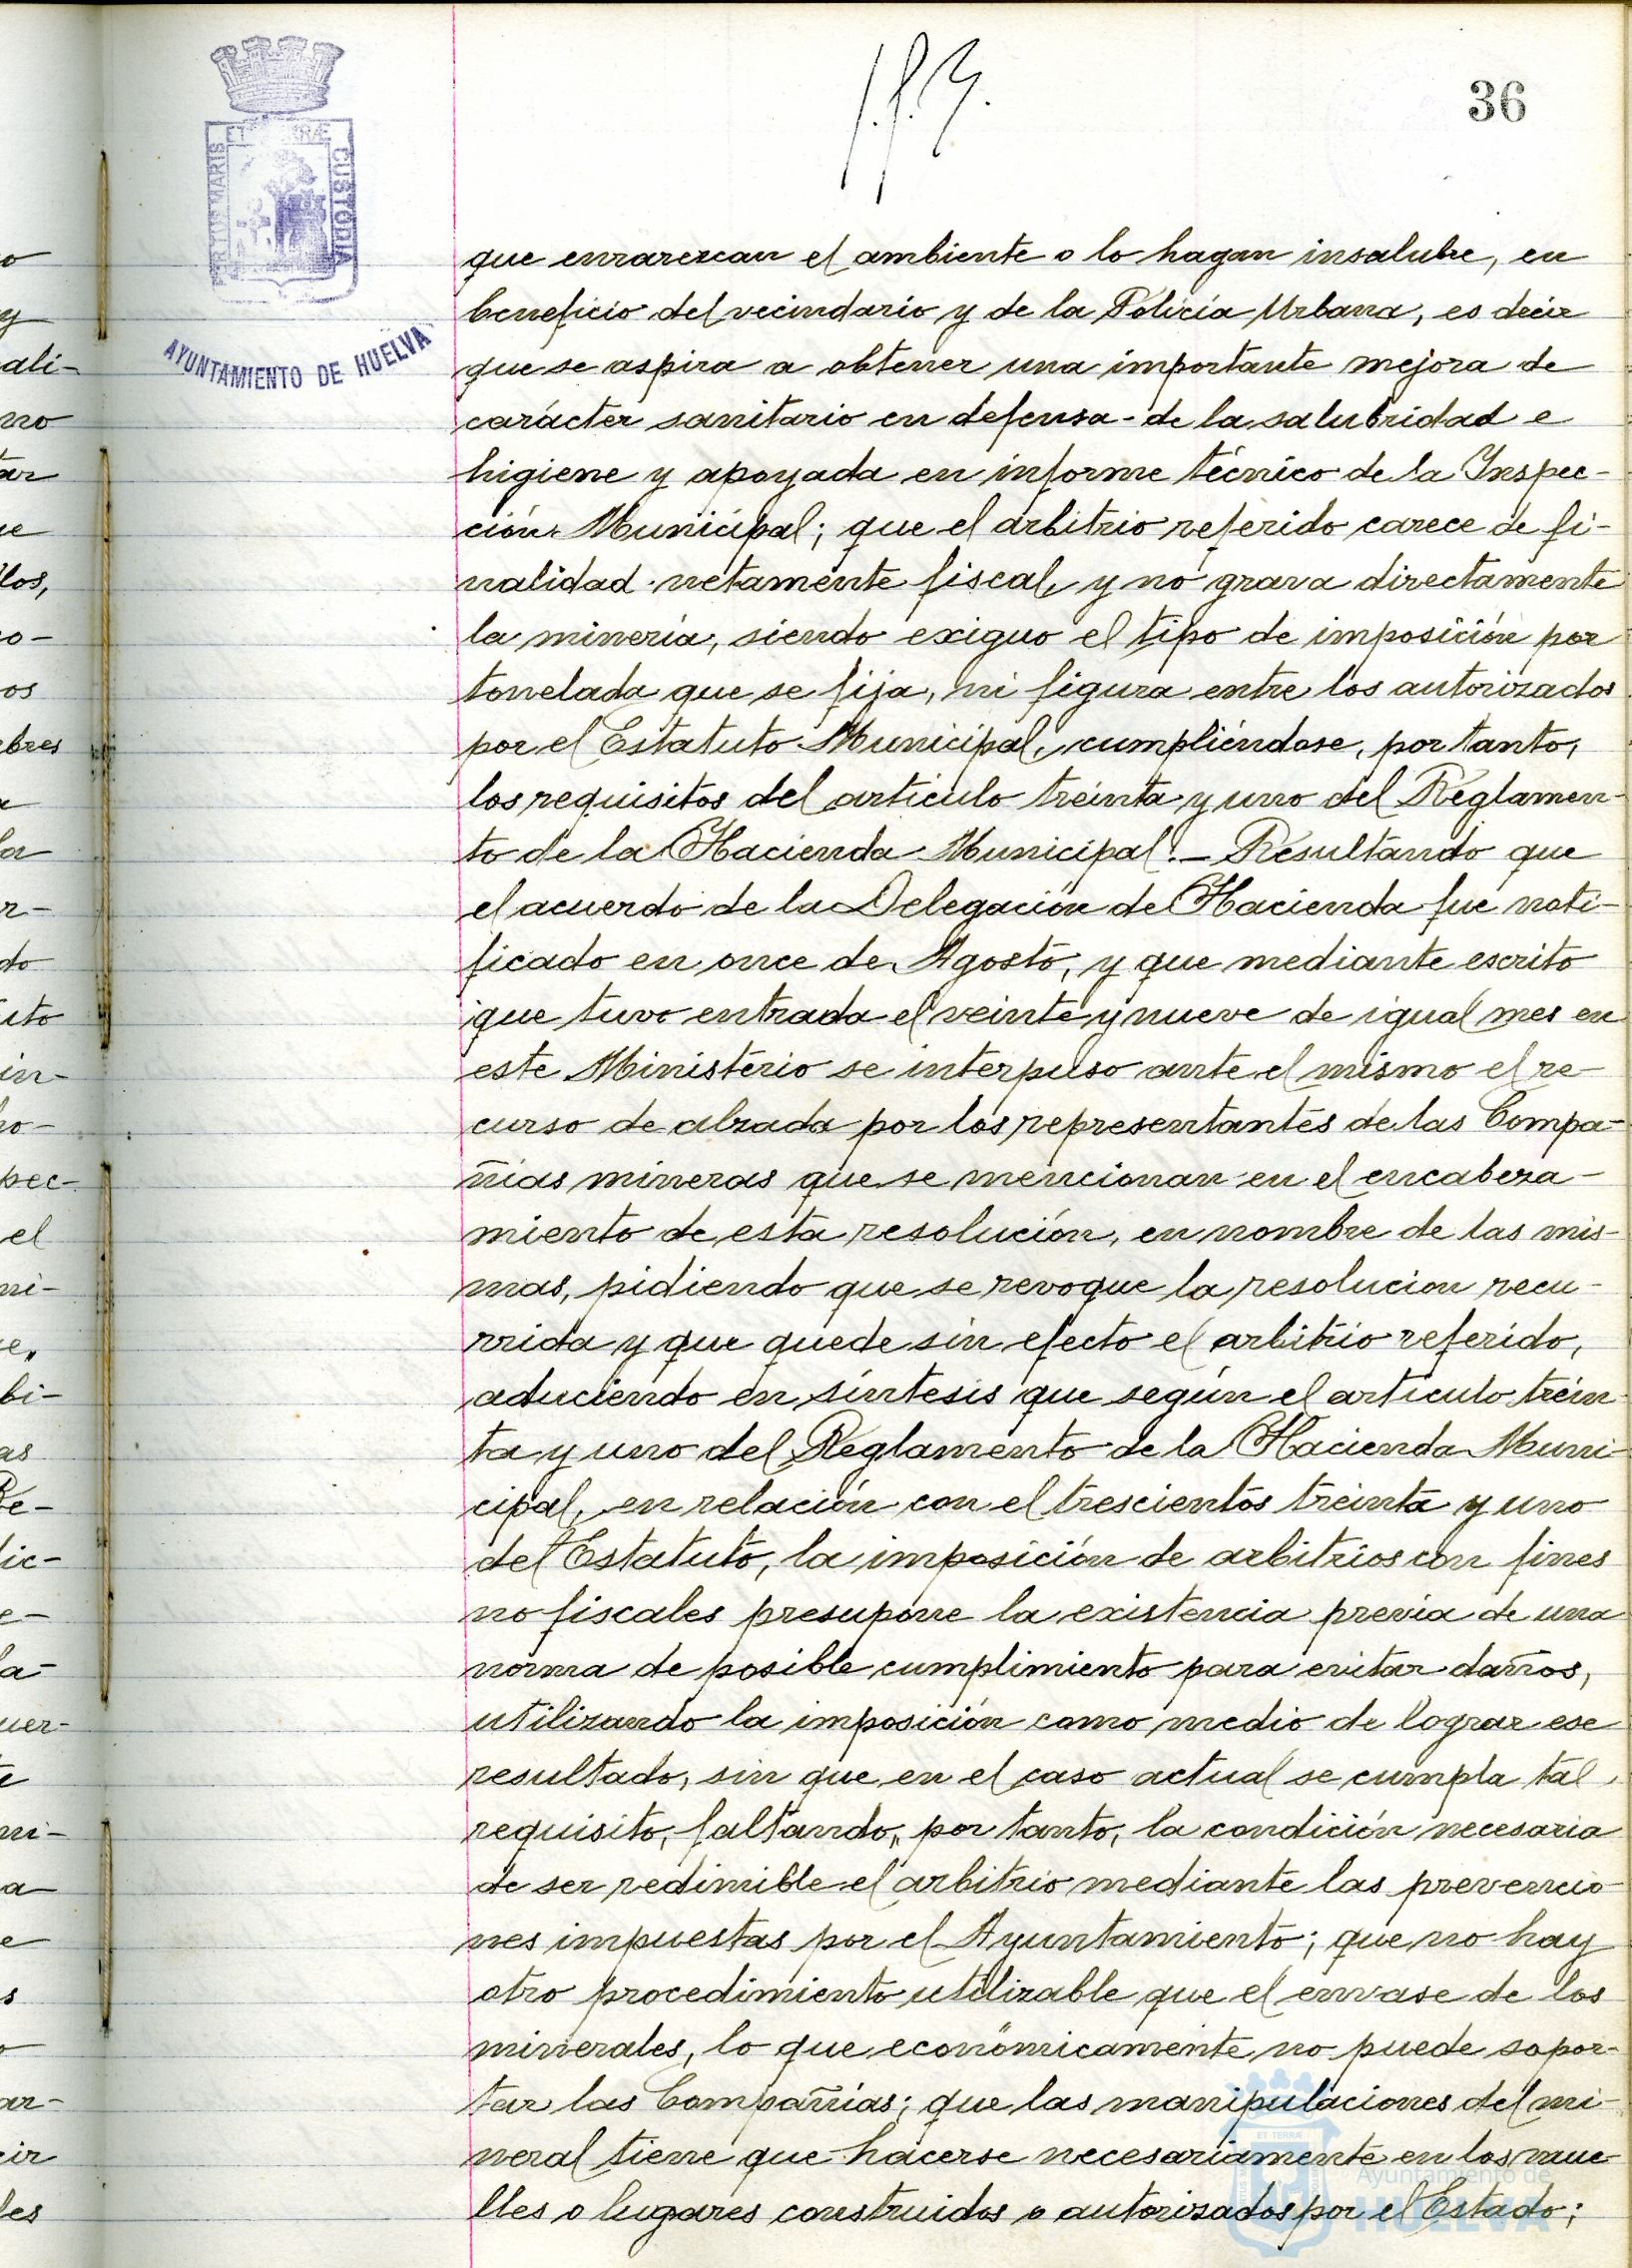 36
ET TERRÆ
PORTUS MARIS
CUSTODIA
AYUNTAMIENTO DE HUELVA
que enrarezcan el ambiente o lo hagan insalubre, en
beneficio del vecindario y de la Policía Urbana, es decir
que se aspira a obtener una importante mejora de
carácter sanitario en defensa de la salubridad e
higiene y apoyada en informe técnico de la Inspec-
ción Municipal; que el arbitrio referido carece de fi-
nalidad netamente fiscal, y no grava directamente
la minería, siendo exiguo el tipo de imposición por
tonelada que se fija, ni figura entre los autorizados
por el Estatuto Municipal, cumpliéndose, por tanto,
los requisitos del artículo treinta y uno del Reglamen-
to de la Hacienda Municipal.- Resultando que
el acuerdo de la Delegación de Hacienda fue noti-
ficado en once de Agosto, y que mediante escrito
que tuvo entrada el veinte y nueve de igual mes en
este Ministerio se interpuso ante el mismo el re-
curso de alzada por los representantes de las Compa-
ñías mineras que se mencionan en el encabeza-
miento de esta resolución, en nombre de las mis-
mas, pidiendo que se revoque la resolucion recu-
rrida y que quede sin efecto el arbitrio referido,
aduciendo en síntesis que según el artículo trein
ta y uno del Reglamento de la Hacienda Muni-
cipal, en relación con el trescientos treinta y uno
del Estatuto, la imposición de arbitrios con fines
no fiscales presupone la existencia previa de una
norma de posible cumplimiento para evitar daños,
utilizando la imposición como medio de lograr ese
resultado, sin que en el caso actual se cumpla tal
requisito, faltando, por tanto, la condición necesaria
de ser redimible el arbitrio mediante las prevencio-
nes impuestas por el Ayuntamiento; que no hay
otro procedimiento utilizable que el envase de los
minerales, lo que económicamente no puede sopor-
tar las Compañias; que las manipulaciones del mi-
neral tiene que hacerse necesariamente en los mue-
lles o lugares construidos o autorizados por el Estado;
Ayuntamiento de
HUELVA